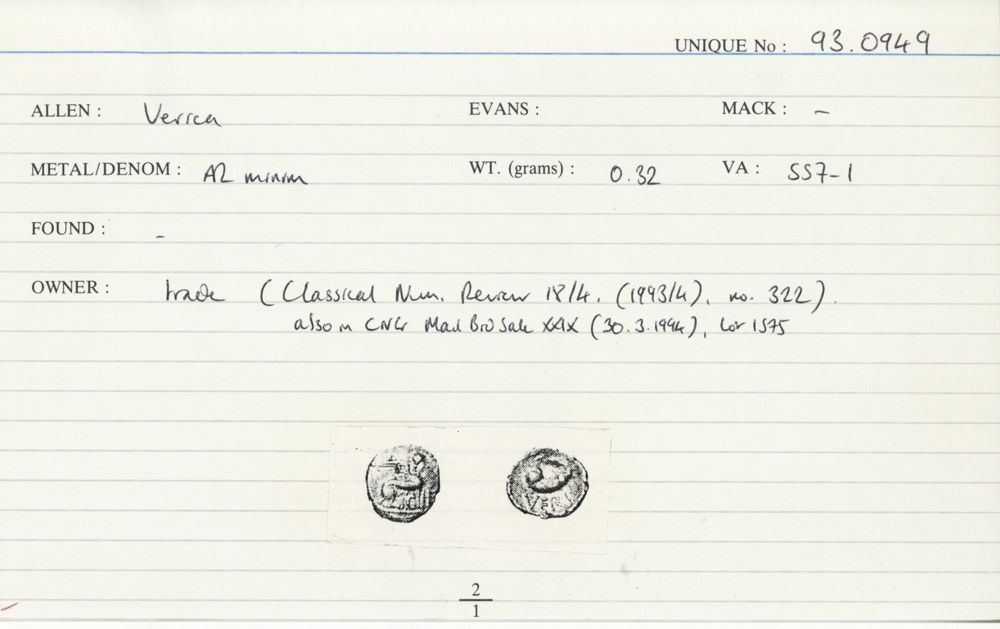 UNIQUE No : 93.0949
ALLEN : Verica EVANS : MACK : –
METAL/DENOM : AR minim WT. (grams) : 0.32 VA : 557-1
FOUND : –
OWNER : trade (Classical Num. Review 18/4. (1993/4), no. 322).
also in CNG Mail Bid Sale XXIX (30.3.1994), lot 1575
VERI
2
1